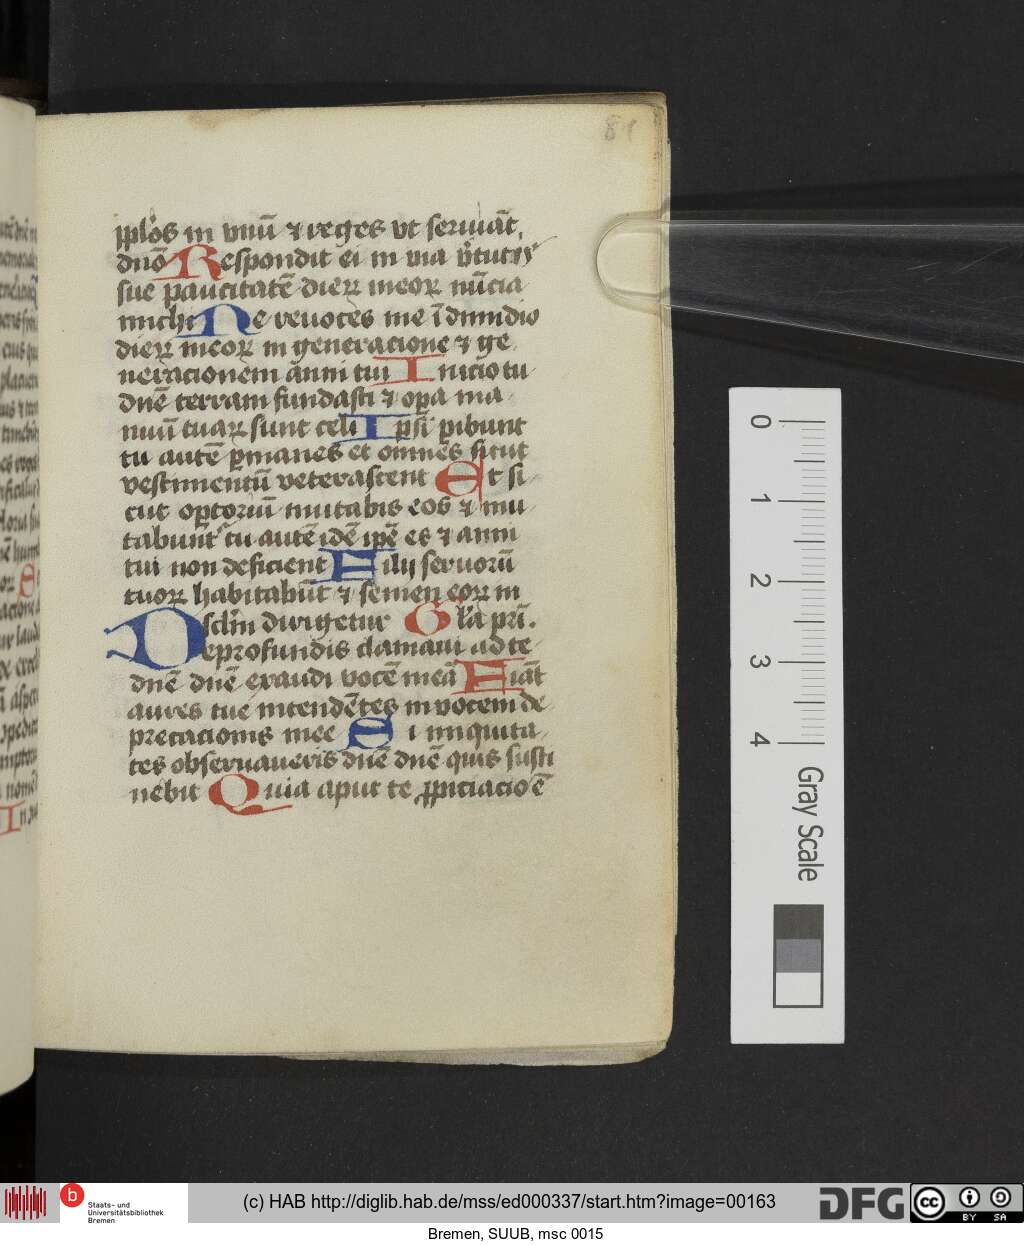 81
pplōs in vnū ⁊ reges vt seruiāt
dnō Respondit ei in via v̄tutꝭ
sue paucitatē dieꝝ meoꝝ nūcia
michi Ne reuoces me ī dimidio
dieꝝ meoꝝ in generacione ⁊ ge
neracionem anni tui Inicio tu
dnē terram fundasti ⁊ opa ma
nuū tuaꝝ sunt celi Ipsī pibunt
tu autē pmanes et omnes sicut
vestimentū veterascent Et si
cut optoriū mutabis eos ⁊ mu
tabunt᷑ tu autē idē ipē es ⁊ anni
tui non deficient Filij seruorū
tuoꝝ habitabūt ⁊ semen eoꝝ in
sclm̄ dirigetur Glā pri.
De profundis clamaui ad te
dnē dnē exaudi vocē meā Fiāt
aures tue intendētes in vocem de
precacionis mee Si iniquita
tes obseruaueris dnē dnē quis susti
nebit Quia aput te ꝓpiciacio ē
0
1
2
3
4
Gray Scale
b Staats- und
Universitätsbibliothek
Bremen
(c) HAB http://diglib.hab.de/mss/ed000337/start.htm?image=00163
DFG
cc BY SA
Bremen, SUUB, msc 0015